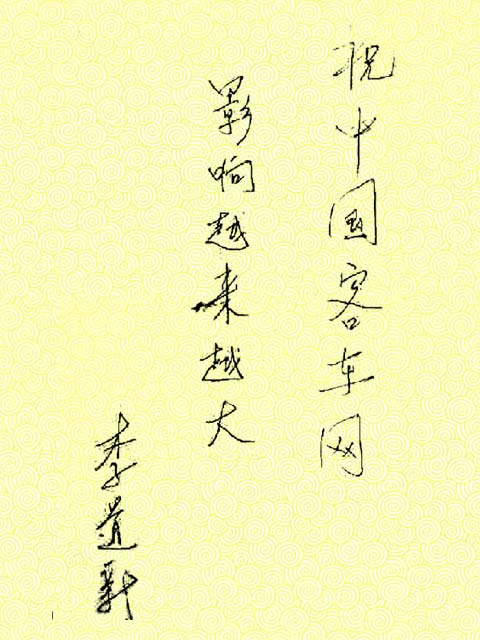 祝中国客车网
影响越来越大
李道新